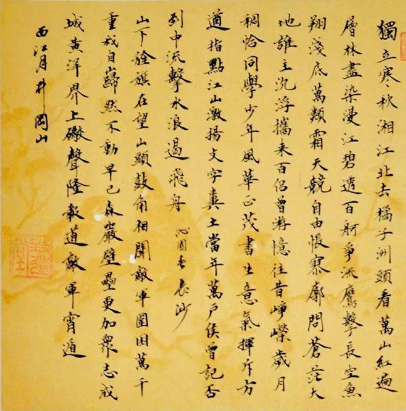 獨立寒秋湘江北去橘子洲頭看萬山紅遍
層林盡染漫江碧透百舸爭流鷹擊長空魚
翔淺底萬類霜天競自由悵寥廓問蒼茫大
地誰主沉浮攜來百侶曾游憶往昔崢嶸歲月
稠恰同學少年風華正茂書生意氣揮斥方
遒指點江山激揚文字糞土當年萬戶侯曾記否
到中流擊水浪遏飛舟 沁園春長沙
山下旌旗在望山頭鼓角相聞敵軍圍困萬千
重我自巋然不動早已森嚴壁壘更加眾志成
城黃洋界上礮聲隆報道敵軍宵遁
西江月井岡山